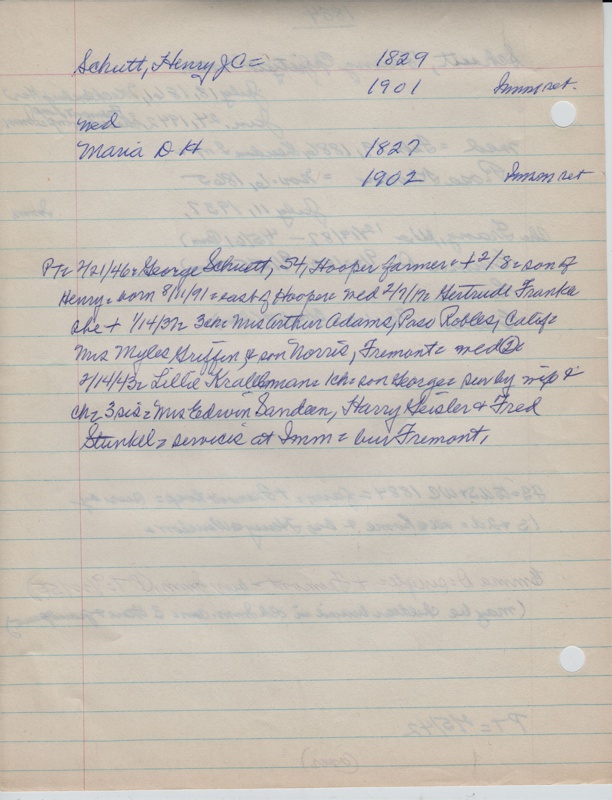 Schutt, Henry J C = 1829
1901 Imm ret.
med
Maria D H 1827
1902 Imm ret
PT = 2/21/46 = George Schutt, 54, Hooper farmer = + 2/8 = son of
Henry = born 8/11/91 = east of Hooper = med 2/7/17 = Gertrude Franke
she + 1/14/37 = 3 ch = Mrs Arthur Adams, Paso Robles, Calif =
Mrs Myles Griffin, & son Norris, Fremont = med ② =
2/14/43 = Lillie Krallman = 1 ch = son George = surv by wife &
ch = 3 sis = Mrs Edwin Sandeen, Harry Geisler & Fred
Stunkel = services at Imm = bur Fremont,